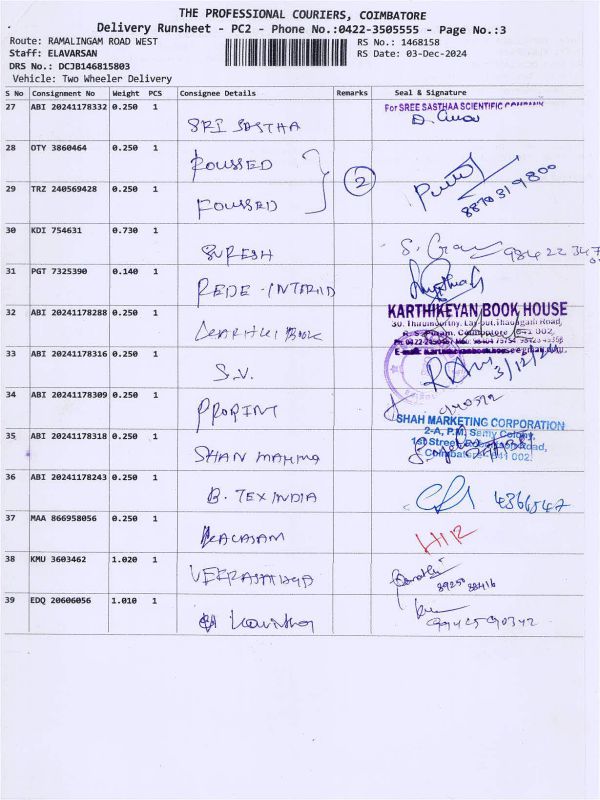 THE PROFESSIONAL COURIERS, COIMBATORE
Delivery Runsheet - PC2 - Phone No.:0422-3505555 - Page No.:3
Route: RAMALINGAM ROAD WEST
RS No.: 1468158
Staff: ELAVARSAN
RS Date: 03-Dec-2024
DRS No.: DCJB146815803
Vehicle: Two Wheeler Delivery
S No Consignment No Weight PCS Consignee Details Remarks Seal & Signature
27 ABI 20241178332 0.250 1
For SREE SASTHAA SCIENTIFIC COMPANY
SRI SASTHA
28 OTY 3860464 0.250 1
ROUSSED
2
29 TRZ 240569428 0.250 1
8870319800
ROUSSED
30 KDI 754631 0.730 1
SURESH
31 PGT 7325390 0.140 1
REDE-INTERIID
32 ABI 20241178288 0.250 1
KARTHIKEYAN BOOK HOUSE
30, Thirumoorthy, Lay-out, Thadagam Road,
R. S. Puram, Coimbatore - 641 002.
33 ABI 20241178316 0.250 1
S.V.
3/12/24
34 ABI 20241178309 0.250 1
PROPINT
SHAH MARKETING CORPORATION
2-A, P.M. Samy Colony,
35 ABI 20241178318 0.250 1
1st Street, Road,
Coimbatore - 641 002.
SHAN MAHMA
36 ABI 20241178243 0.250 1
B. TEX INDIA
4366547
37 MAA 866958056 0.250 1
38 KMU 3603462 1.020 1
39250 38416
39 EDQ 20606056 1.010 1
9942590342